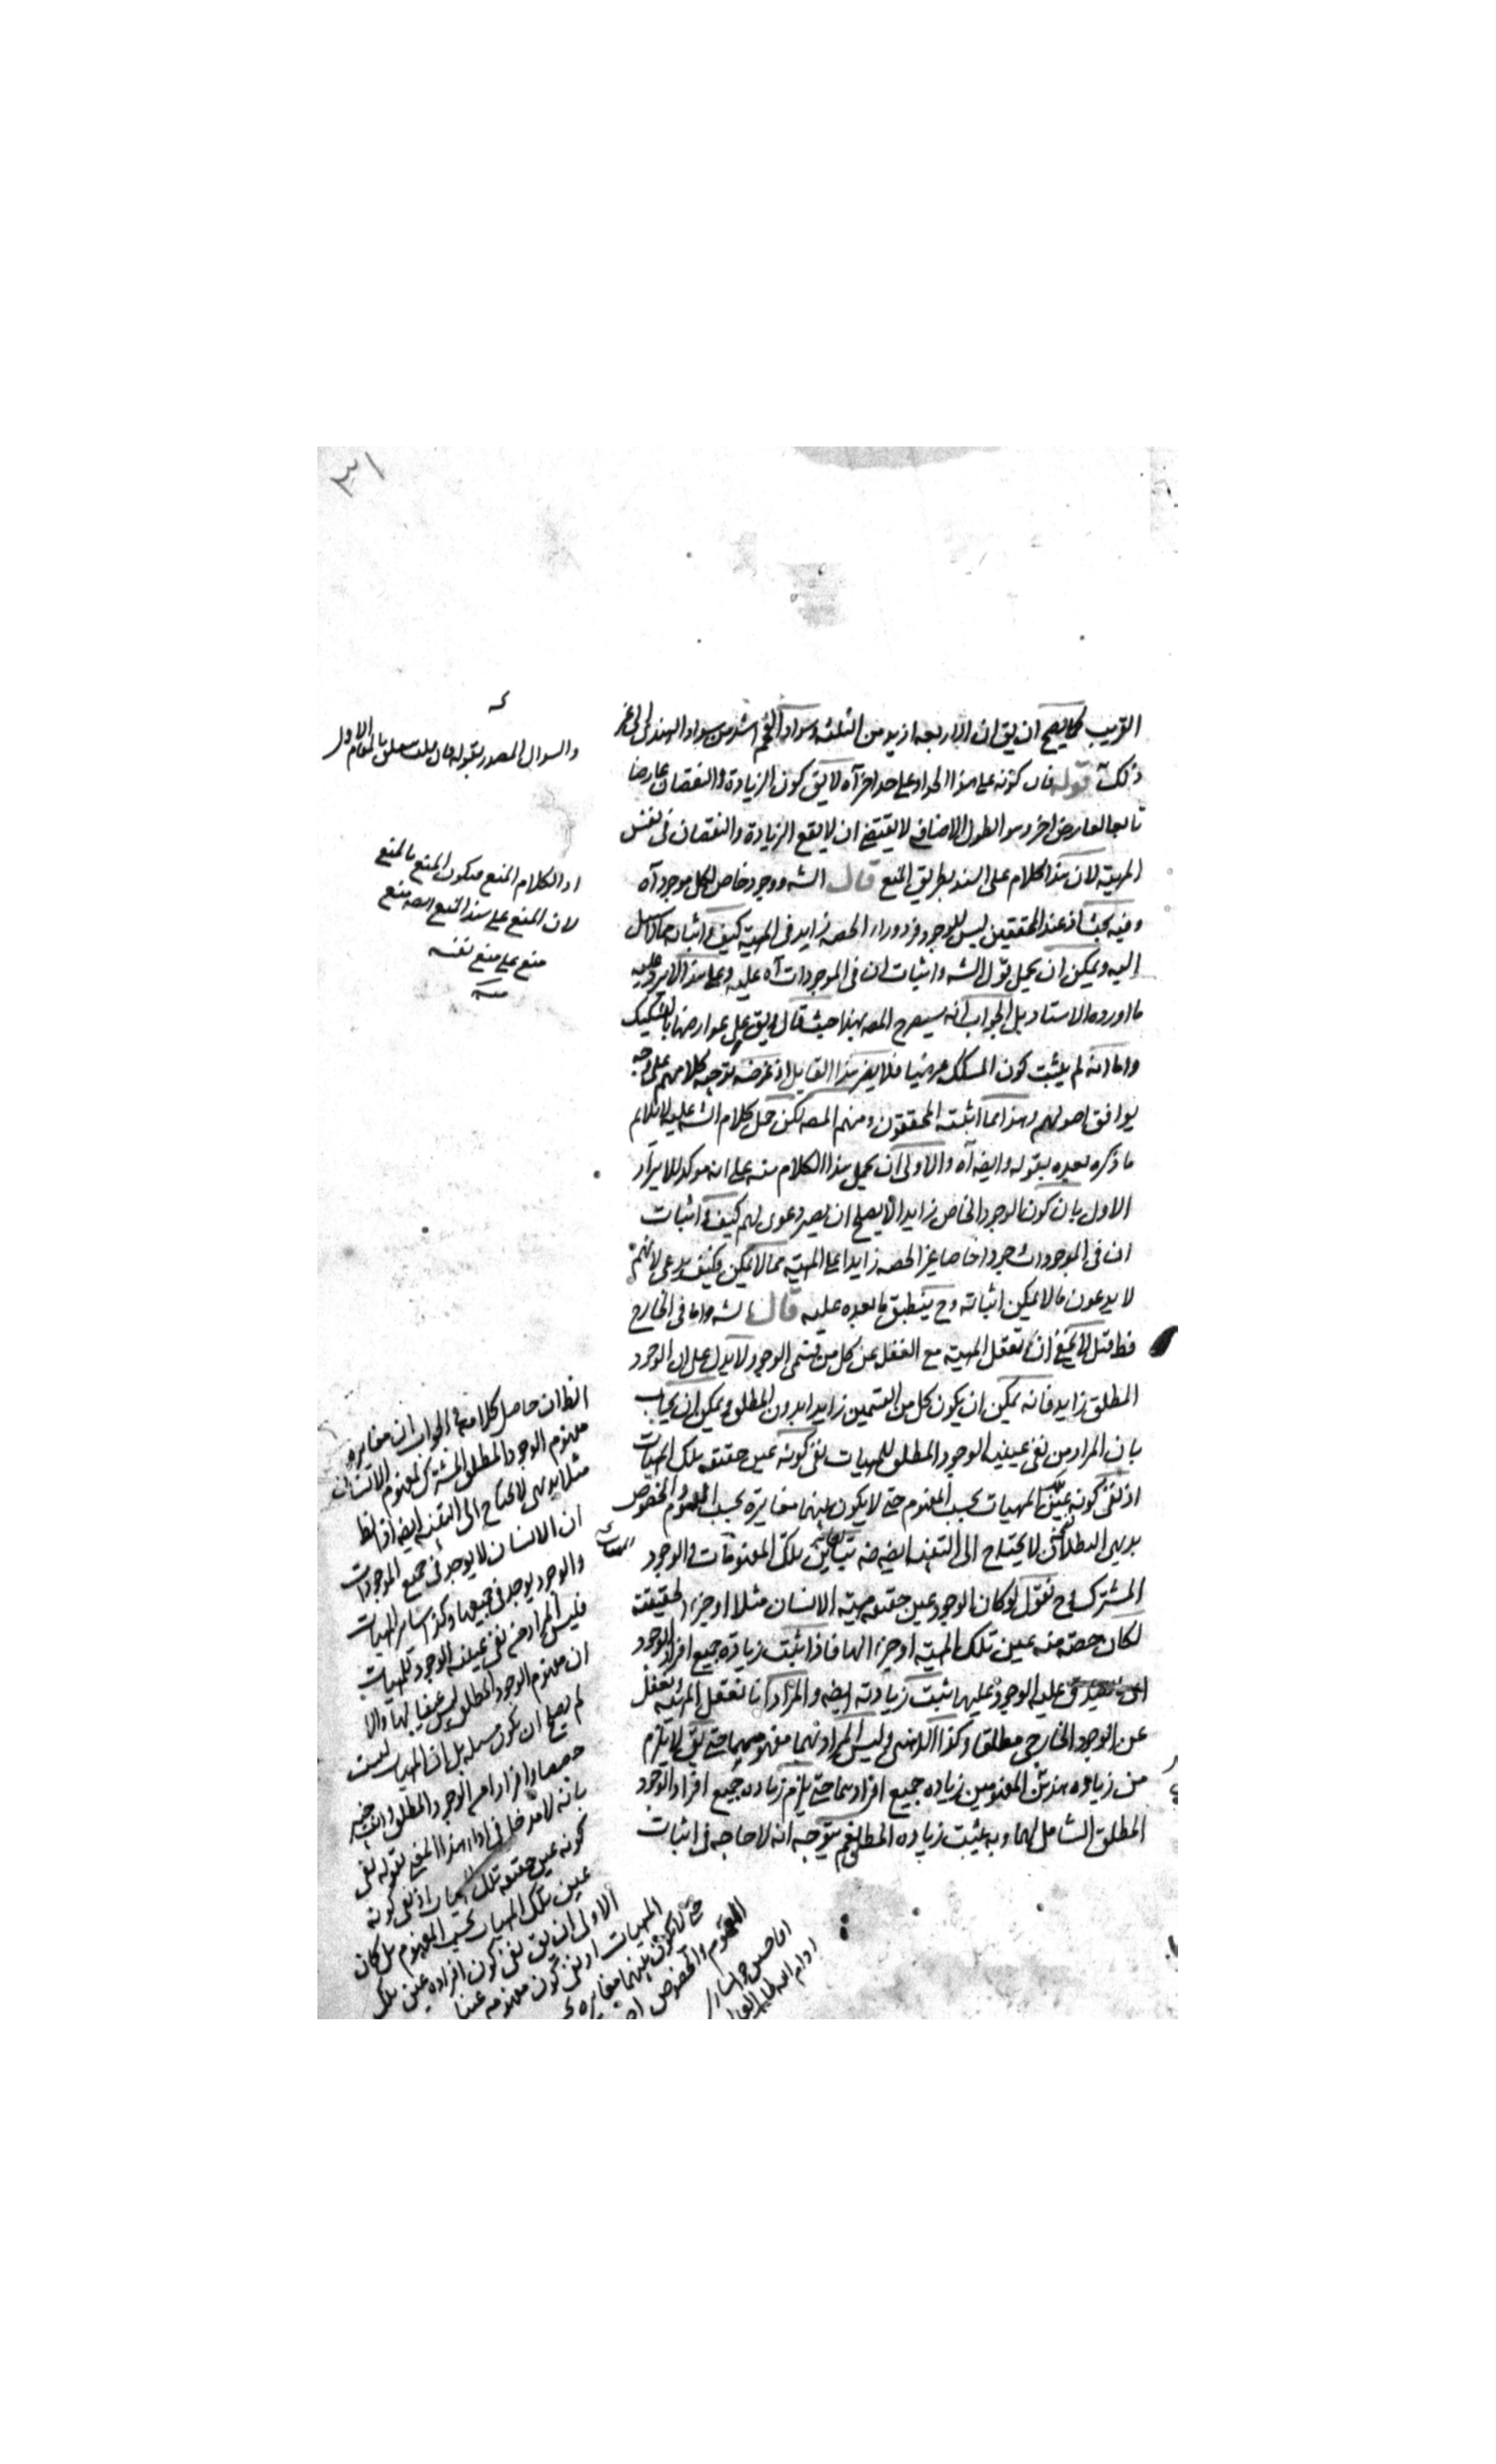 ٣١
القريب كما يصح ان يق ان الاربعه ازيد من الثلثه وسواد الفحم اشد من سواد الهندى الى غير
ذلك قوله فان كونه على هذا الحد او على حد اخر آه لا يق كون الزيادة والنقصان عارضا
تابعا لعارض اخر وهو الطول الاضافى لا يقتضى ان لا يقع الزيادة والنقصان فى نفس
المهية لان هذا الكلام على السند بطريق المنع قال الشه ووجود خاص لكل موجود آه
وفيه بحث اذ عند المحققين ليس للوجود فرد وراء الحصه زايد فى المهية كيف واثباته مما لا سبيل
اليه ويمكن ان يحمل قول الشه واثبات ان فى الموجودات آه عليه وعلى هذا لا يرد عليه
ما اورده الاستاد بل الجواب انه سيصرح المصه بهذا حيث قال ويق على عوارضها بالتشكيك
واما انه لم يثبت كون المشكك عرضيا فلا يضر هذا القايل اذ غرضه توجيه كلامهم على وجه
يوافق اصولهم وهذا مما اثبته المحققون ومنهم المصه لكن حمل كلام الشه عليه لا يلايم
ما ذكره بعده بقوله وايضه آه والاولى ان يحمل هذا الكلام منه على انه موكد للايراد
الاول بان كون الوجود الخاص زايدا لا يصلح ان يصير دعوى لهم كيف واثبات
ان فى الموجودات وجودا خاصا غير الحصه زايدا على المهية مما لا يمكن فكيف يدعى لانهم
لا يدعون ما لا يمكن اثباته وح ينطبق ما بعده عليه قال الشه واما فى الخارج
فظ قيل لا يخفى ان تعقل المهية مع الغفلة عن كل من قسمى الوجود لا يدل على ان الوجود
المطلق زايد فانه يمكن ان يكون كل من القسمين زايدا بدون المطلق ويمكن ان يجاب
بان المراد من نفى عينية الوجود المطلق للمهيات نفى كونه عين حقيقه تلك المهيات
اذ نفى كونه عين المهيات بحسب المفهوم حتى لا يكون بينهما مغايرة بحسب المفهوم والخصوص
بديهى البطلان لا يحتاج الى التنبيه ايضه ضه تباين تلك المفهومات والوجود
المشترك وح نقول لو كان الوجود عين حقيقه مهية الانسان مثلا او جزء الحقيقة
لكان حصة منه عين تلك المهية او جزء الها فاذا ثبت زيادة جميع افراد الوجود
عليه الوجود عليها ثبت زيادته ايضه والمراد انا نتعقل المهية ونغفل
عن الوجود الخارجى مطلقا وكذا الذهنى وليس المراد بهما مفهومهما حتى يق لا يلزم
من زيادة هذين المفهومين زيادة جميع افرادهما حتى يلزم زيادة جميع افراد الوجود
المطلق الشامل لهما وبه يثبت زيادة المطلق نعم يتوجه انه لا حاجة فى اثبات
والسوال المصدر بقوله فان قلت متعلق بالمقام الاول
اذ الكلام المنع فيكون المنع بالمنع
لان المنع على سند المنع ايضه منع
منع على منع نفسه
منه
الظ ان حاصل كلامه فى الجواب ان مغايرة
مفهوم الوجود المطلق المشترك لمفهوم الانسان
مثلا بديهى لا يحتاج الى التنبيه ايضه اذ الظ
ان الانسان لا يوجد فى جميع الموجودات
والوجود يوجد فى جميعها وكذا ساير المهيات
فليس المراد من نفى عينية الوجود للمهيات
ان مفهوم الوجود المطلق ليس عينا لها والا
لم يصح ان يكون مسئله بل ان المهيات ليست
حصصا وافرادا من الوجود المطلق وانت خبير
بانه لا مدخل فى اداء هذا المعنى لقوله نفى
كونه عين حقيقه تلك المهيات اذ نفى كونه
عين تلك المهيات بحسب المفهوم بل كان
الاولى ان يق نفى كون افراده عين تلك
المهيات اذ نفى كون مفهومه عينا
حتى لا يكون بينهما مغايرة
المفهوم والخصوص
اقا حسين خوانسارى
ادام الله ظله العالى